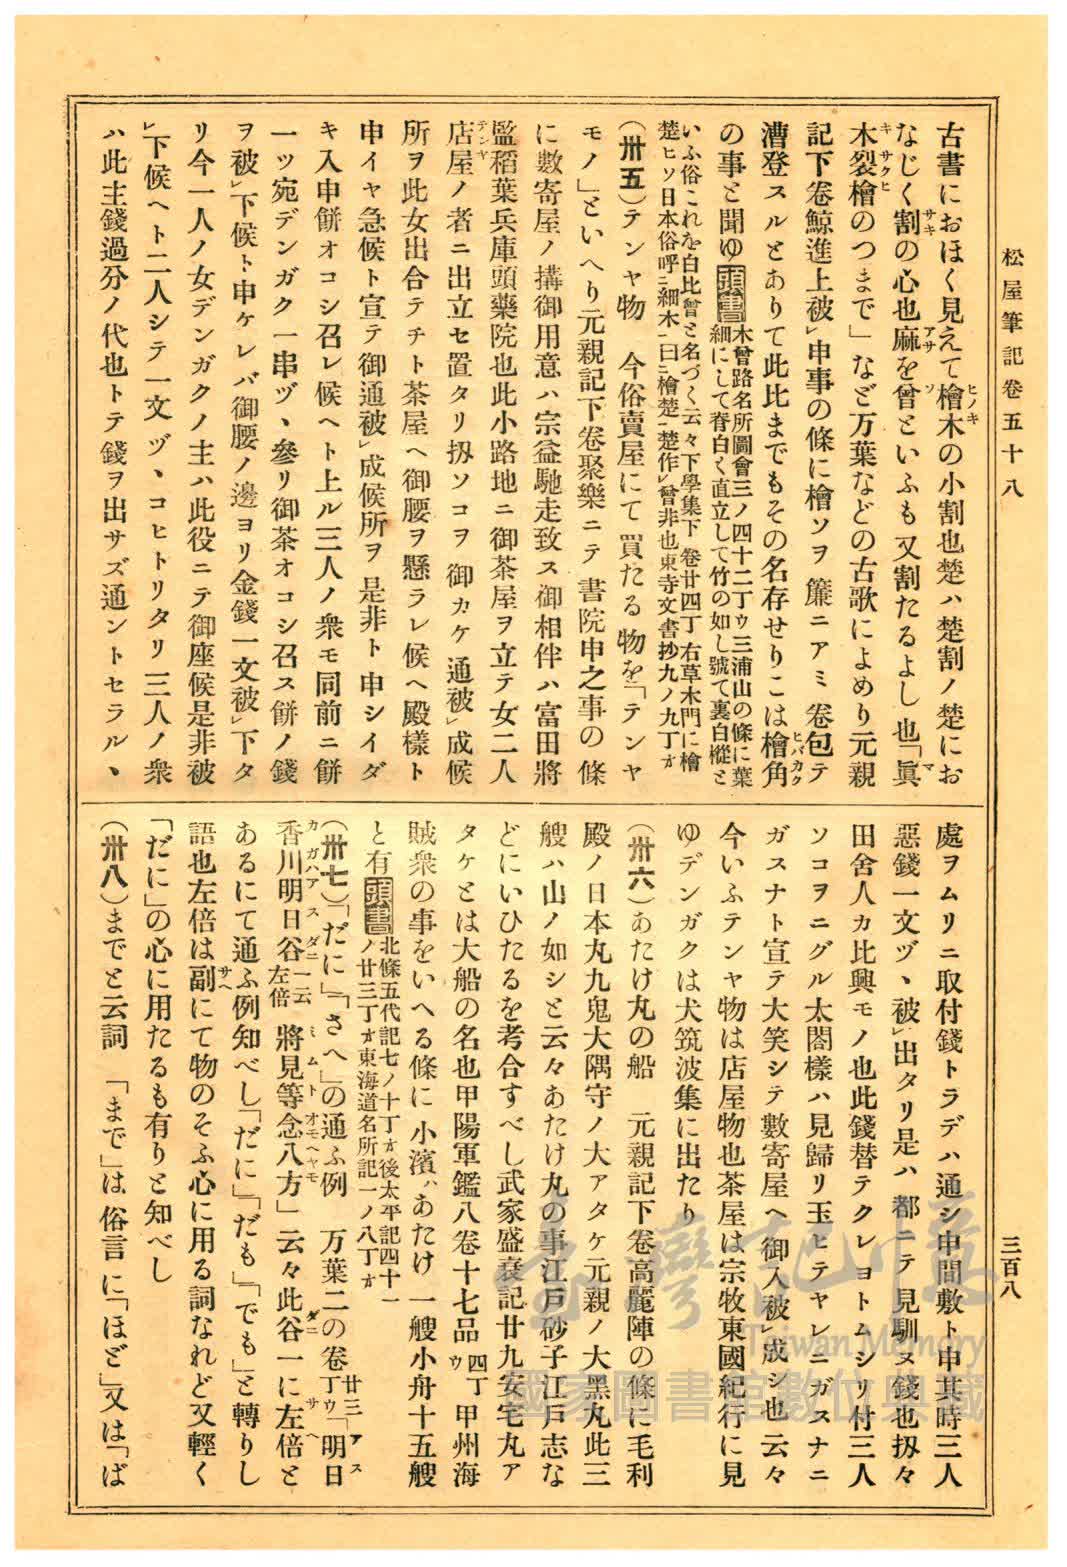 松屋筆記卷五十八
三百八
古書におほく見えて檜木の小割也楚ハ楚割ノ楚にお
なじく割の心也麻を曾といふも又割たるよし也「眞
木裂檜のつまで」など万葉などの古歌によめり元親
記下卷鯨進上被レ申事の條に檜ソヲ簾ニアミ卷包テ
漕登スルとありて此比までもその名存せりこは檜角
の事と聞ゆ頭書木曾路名所圖會三ノ四十二丁ウ三浦山の條に葉
細にして脊白く直立して竹の如し號て裏白樅と
いふ俗これを白比曾と名づく云々下學集下卷廿四丁右草木門に檜
楚ヒソ日本俗呼ニ細木一曰ニ檜楚一楚作レ曾非也東寺文書抄九ノ九丁オ
(卅五)テンヤ物 今俗賣屋にて買たる物を「テンヤ
モノ」といへり元親記下卷聚樂ニテ書院申之事の條
に數寄屋ノ搆御用意ハ宗益馳走致ス御相伴ハ富田將
監稻葉兵庫頭藥院也此小路地ニ御茶屋ヲ立テ女二人
店屋ノ者ニ出立セ置タリ扨ソコヲ御カケ通被レ成候
所ヲ此女出合テチト茶屋ヘ御腰ヲ懸ラレ候ヘ殿樣ト
申イヤ急候ト宣テ御通被レ成候所ヲ是非ト申シイダ
キ入申餅オコシ召レ候ヘト上ル三人ノ衆モ同前ニ餅
一ツ宛デンガク一串ヅヽ參リ御茶オコシ召ス餅ノ錢
ヲ被レ下候ト申ケレバ御腰ノ邊ヨリ金錢一文被レ下タ
リ今一人ノ女デンガクノ主ハ此役ニテ御座候是非被
レ下候ヘト二人シテ一文ヅヽコヒトリタリ三人ノ衆
ハ此主錢過分ノ代也トテ錢ヲ出サズ通ントセラルヽ
處ヲムリニ取付錢トラデハ通シ申間敷ト申其時三人
惡錢一文ヅヽ被レ出タリ是ハ都ニテ見馴ヌ錢也扨々
田舍人カ比興モノ也此錢替テクレヨトムシリ付三人
ソコヲニグル太閤樣ハ見歸リ玉ヒテヤレニガスナニ
ガスナト宣テ大笑シテ數寄屋ヘ御入被レ成シ也云々
今いふテンヤ物は店屋物也茶屋は宗牧東國紀行に見
ゆデンガクは犬筑波集に出たり
(卅六)あたけ丸の船 元親記下卷高麗陣の條に毛利
殿ノ日本丸九鬼大隅守ノ大アタケ元親ノ大黑丸此三
艘ハ山ノ如シと云々あたけ丸の事江戸砂子江戸志な
どにいひたるを考合すべし武家盛衰記廿九安宅丸ア
タケとは大船の名也甲陽軍鑑八卷十七品四丁ウ甲州海
賊衆の事をいへる條に小濱ハあたけ一艘小舟十五艘
と有頭書北條五代記七ノ十丁オ後太平記四十一
ノ廿三丁オ東海道名所記一ノ八丁オ
(卅七)「だに」「さへ」の通ふ例 万葉二の卷廿三丁ウ「明日
香川明日谷一云左倍將見等念八方」云々此谷一に左倍と
あるにて通ふ例知べし「だに」「だも」「でも」と轉りし
語也左倍は副にて物のそふ心に用る詞なれど又輕く
「だに」の心に用たるも有りと知べし
(卅八)までと云詞 「まで」は俗言に「ほど」又は「ば
臺灣記憶
Taiwan Memory
國家圖書館數位典藏